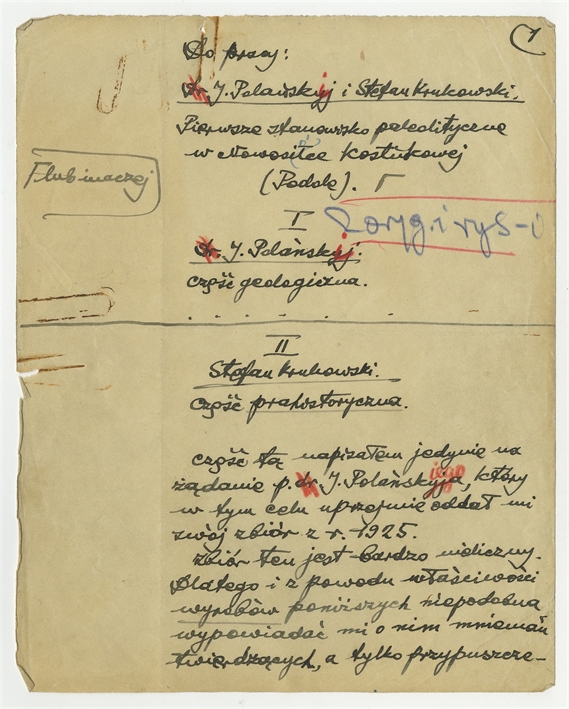 1
Do pracy:
Dr J. Polańskyj i Stefan Krukowski.
Pierwsze stanowisko paleolityczne
w Nowosiłce Kostiukowej
(Podole). Γ
F lub inaczej
I
Dr. J. Polańskyj.
część geologiczna.
II
Stefan Krukowski.
część prahistoryczna.
część tą napisałem jedynie na
żądanie p. dr. J. Polańskyja, który
iego
w tym celu uprzejmie oddał mi
swój zbiór z r. 1925.
Zbiór ten jest bardzo nieliczny.
Dlatego i z powodu właściwości
wyrobów poniższych niepodobna
wypowiadać mi o nim mniemań
twierdzących, a tylko przypuszcze-